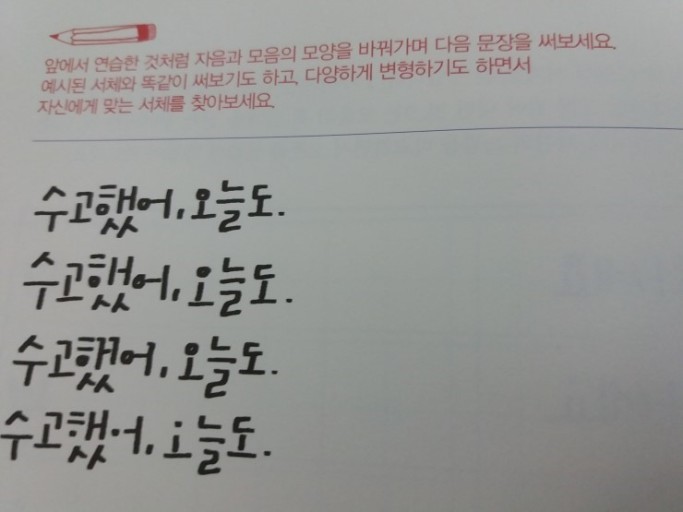 앞에서 연습한 것처럼 자음과 모음의 모양을 바꿔가며 다음 문장을 써보세요.
예시된 서체와 똑같이 써보기도 하고, 다양하게 변형하기도 하면서
자신에게 맞는 서체를 찾아보세요.
수고했어, 오늘도.
수고했어, 오늘도.
수고했어, 오늘도.
수고했어, 오늘도.